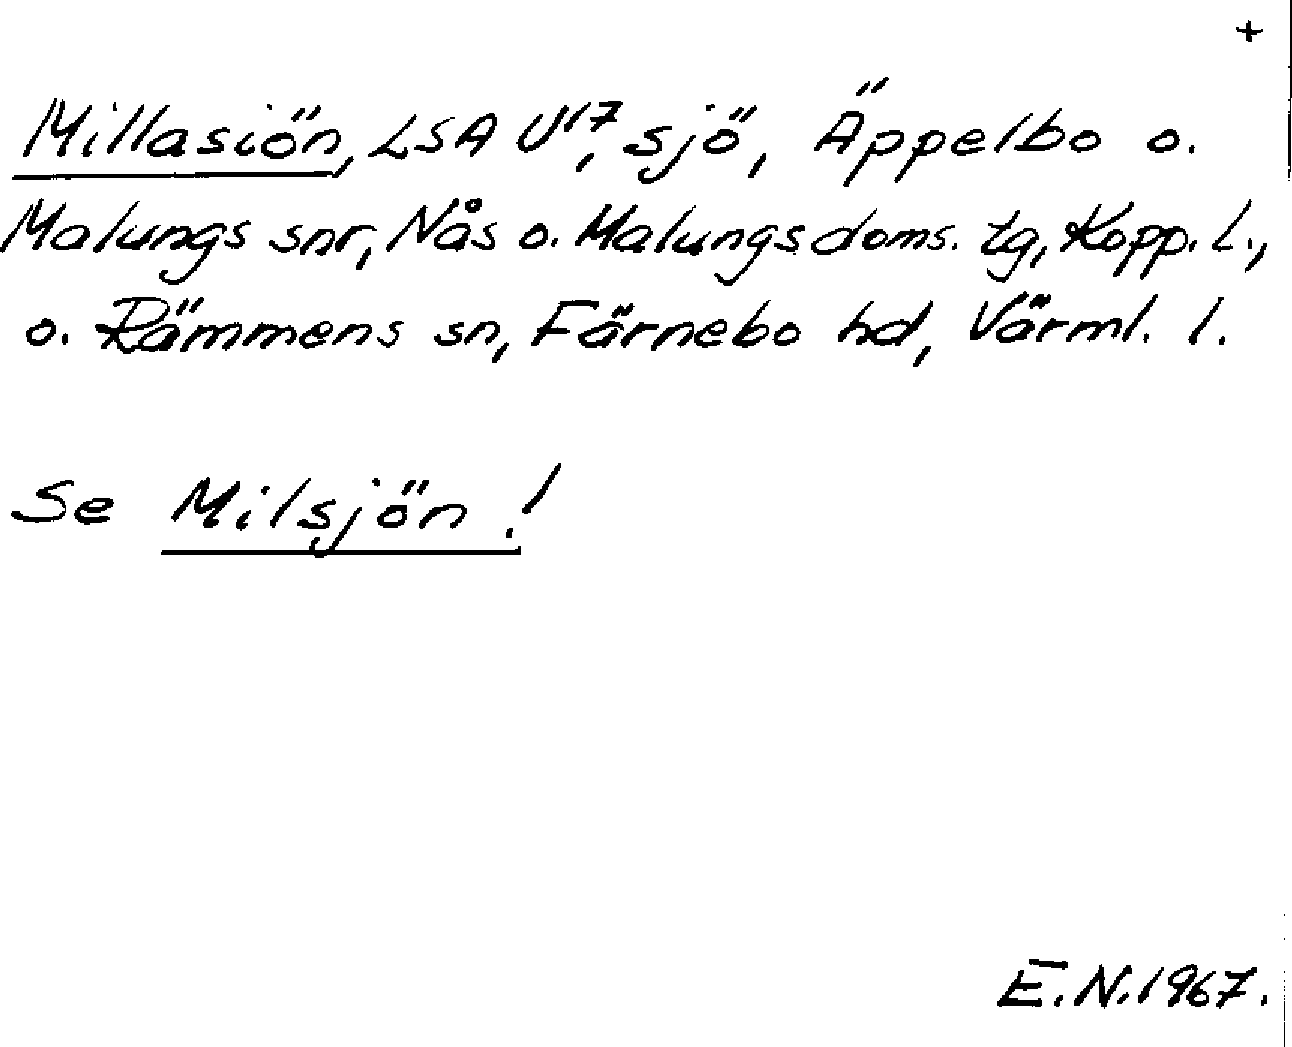 +
Millasiön, LSA U¹⁷, sjö, Äppelbo o.
Malungs snr, Nås o. Malungs doms. tg, Kopp. L.,
o. Rämmens sn, Färnebo hd, Värml. l.
Se Milsjön!
E.N. 1967.